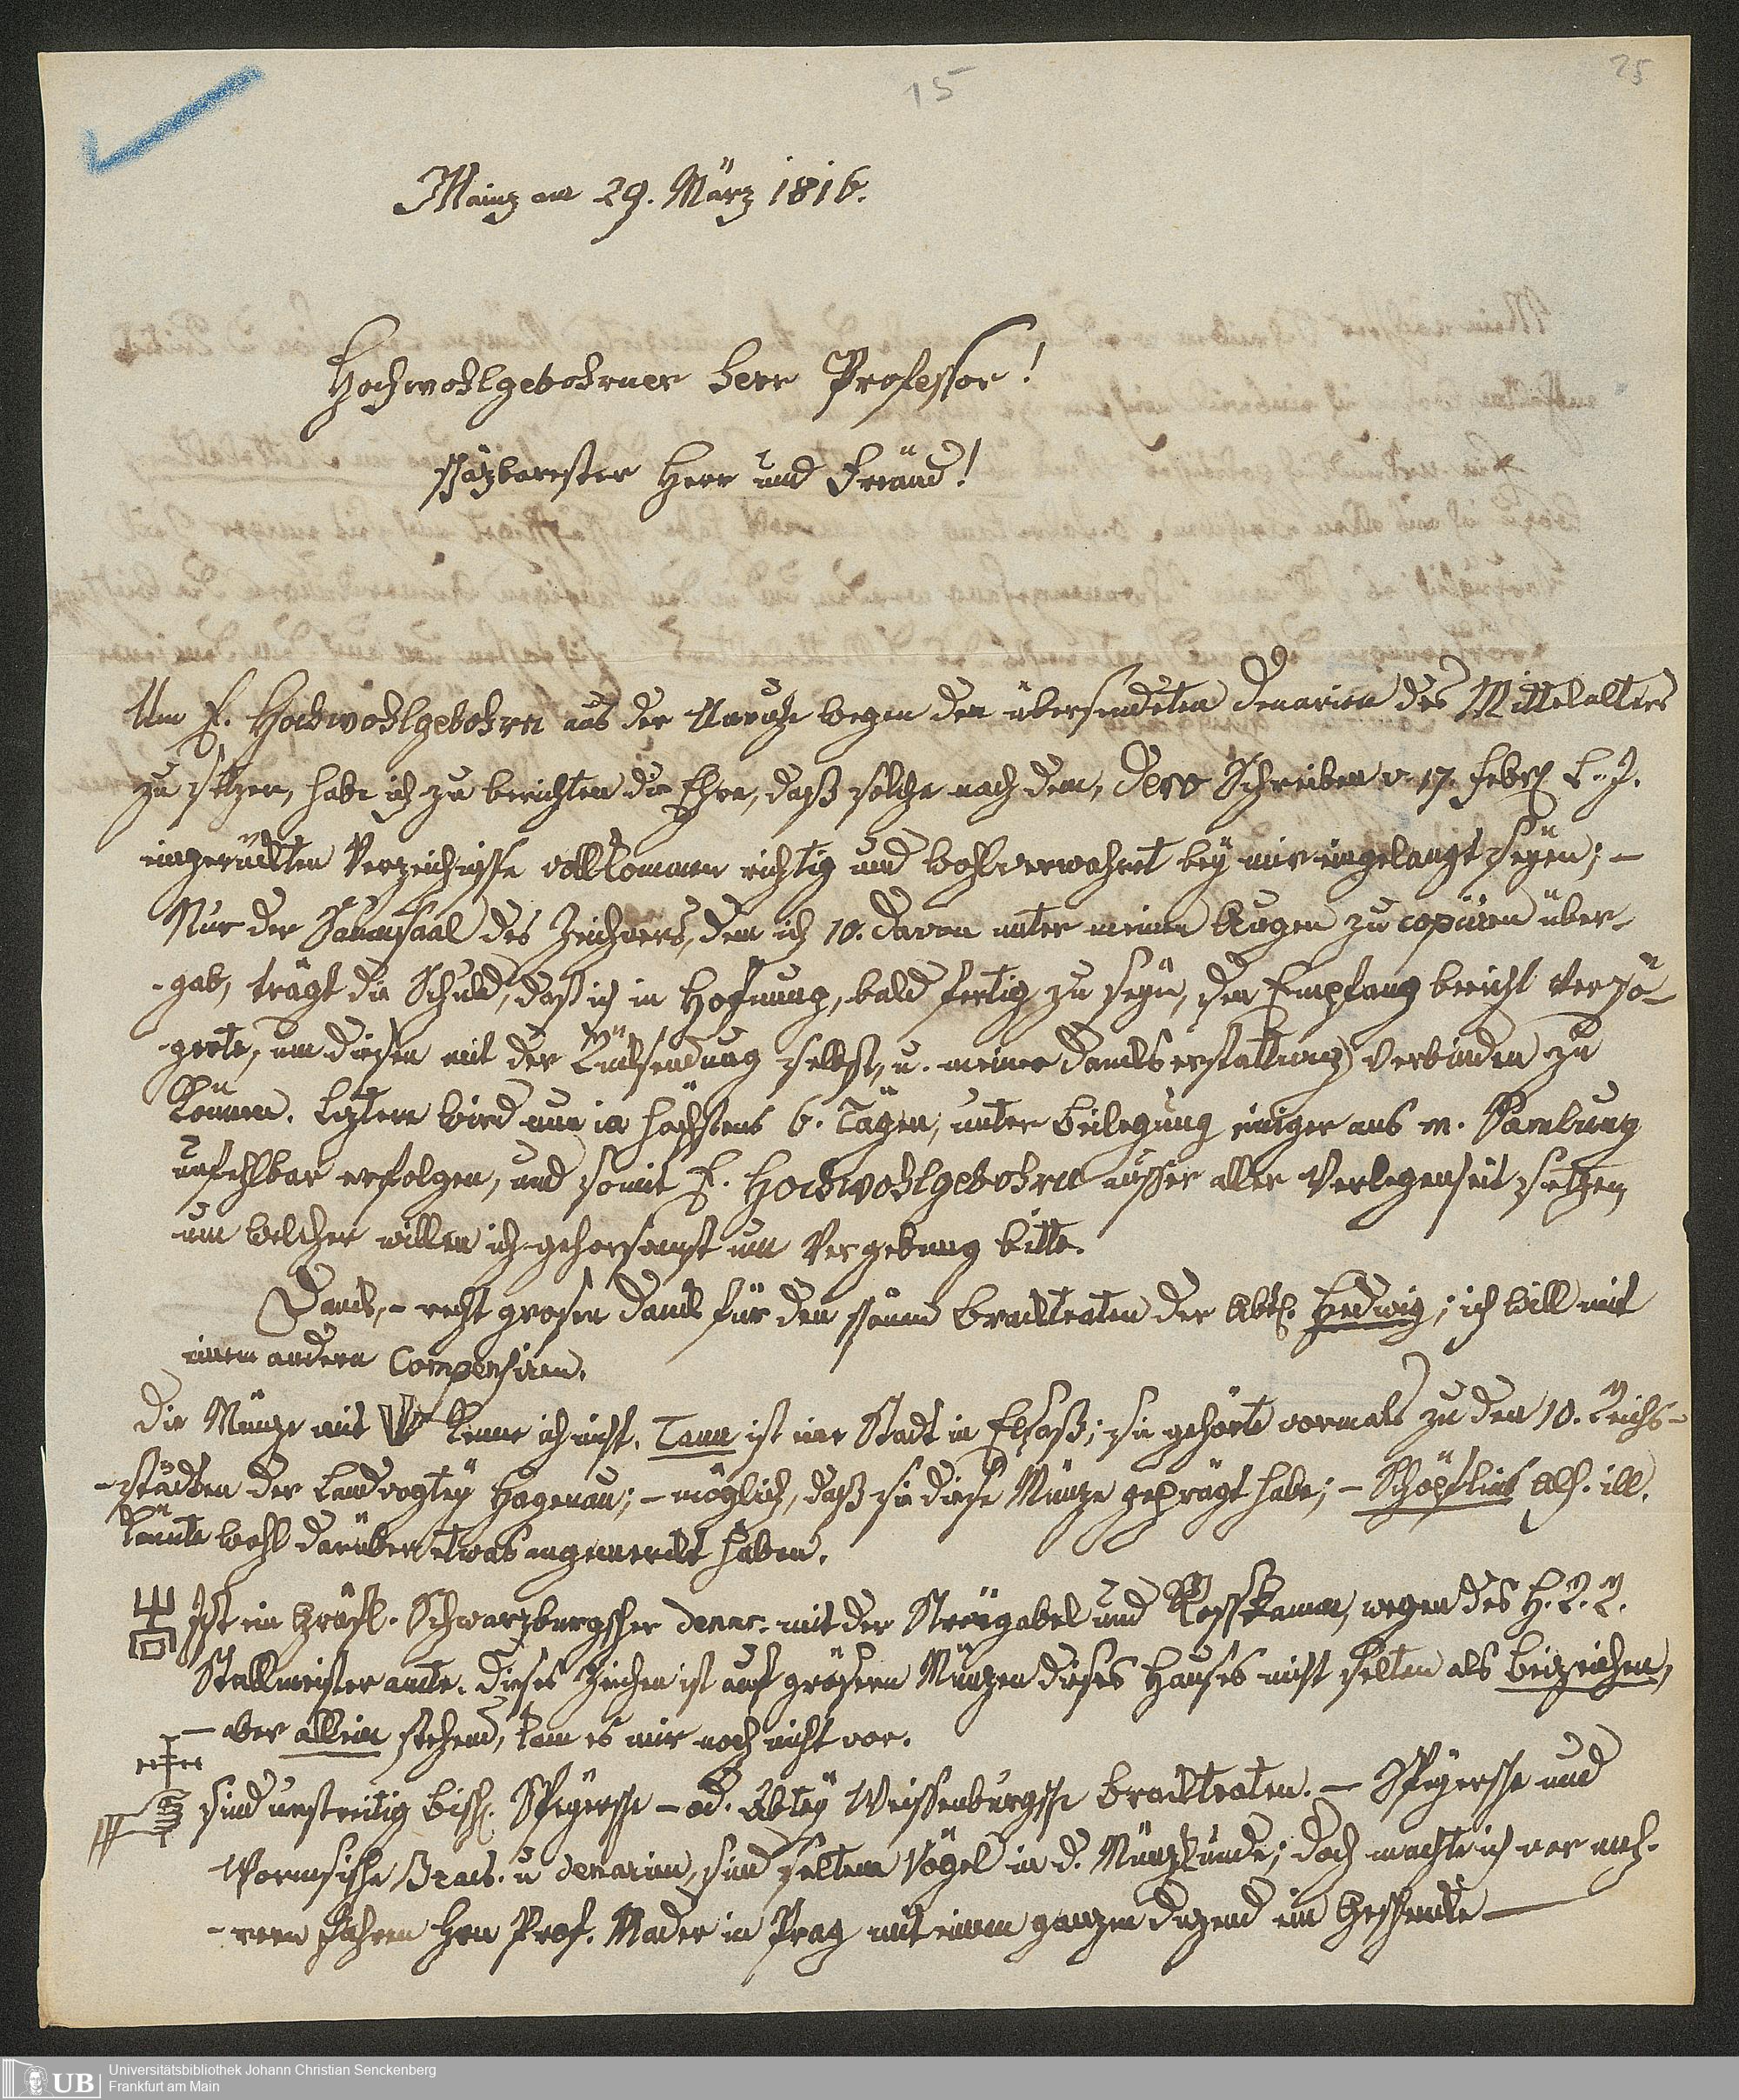 15
25
Mainz am 29. März 1816.
Hochwohlgebohrner Herr Professor!
Schäzbarester Herr und Freünd!
Um E. Hochwohlgebohrn aus der Unruhe wegen der übersendeten Denarien des Mittelalters
zu sezen, habe ich zu berichten die Ehre, daß solche nach dem, Dero Schreiben v. 17. Febr. l. J.
eingerückten Verzeichnisse vollkommen richtig und wohlverwahrt bey mir eingelangt seyen; –
Nur der Saumsaal des Zeichners, dem ich 10. davon unter meinen Augen zu copiiren über-
-gab, trägt die Schuld, daß ich in Hofnung, bald fertig zu seyn, den Empfang bericht verzö-
-gerte, um diesen mit der Rücksendung selbst, u. meiner Dankserstattung verbinden zu
können. Leztere wird nun in höchstens 6. Tägen, unter Beilegung einiger aus m. Samlung
unfehlbar erfolgen, und somit E. Hochwohlgebohrn ausser aller Verlegenheit setzen,
um welcher willen ich gehorsamst um Vergebung bitte.
Dank, – recht grosen Dank für den schönen Bracteaten der Abt. Hedwig; ich will mit
einem andern Compensiren.
Die Münze mit kenne ich nicht. Tann ist eine Stadt in Elsaß; sie gehörte vormals zu den 10. Reichs-
-städten der Landvogtey Hagenau; – möglich, daß sie diese Münze geprägt habe; – Schöpflins Als. ill.
könnte wohl darüber etwas angemerkt haben.
Ist ein Gräfl. Schwarzburgscher denar. mit der Streügabel und Rosskamm, wegen des H. R. R.
Stallmeister amte. Dieses Zeichen ist auf grösern Münzen dieses Hauses nicht selten als Beizeichen,
– aber allein stehend, kam es mir noch nicht vor.
sind unstreitig bisch. Speyersche – od. Abtey Weissenburgsche Bracteaten. – Speyersche und
Wormsische Bract. u denarien, sind seltene Vögel in d. Münzkunde; doch machte ich vor meh-
-reren Jahren Hrn Prof. Mader in Prag mit einem ganzen duzend ein Geschenke –
Universitätsbibliothek Johann Christian Senckenberg
Frankfurt am Main
UB